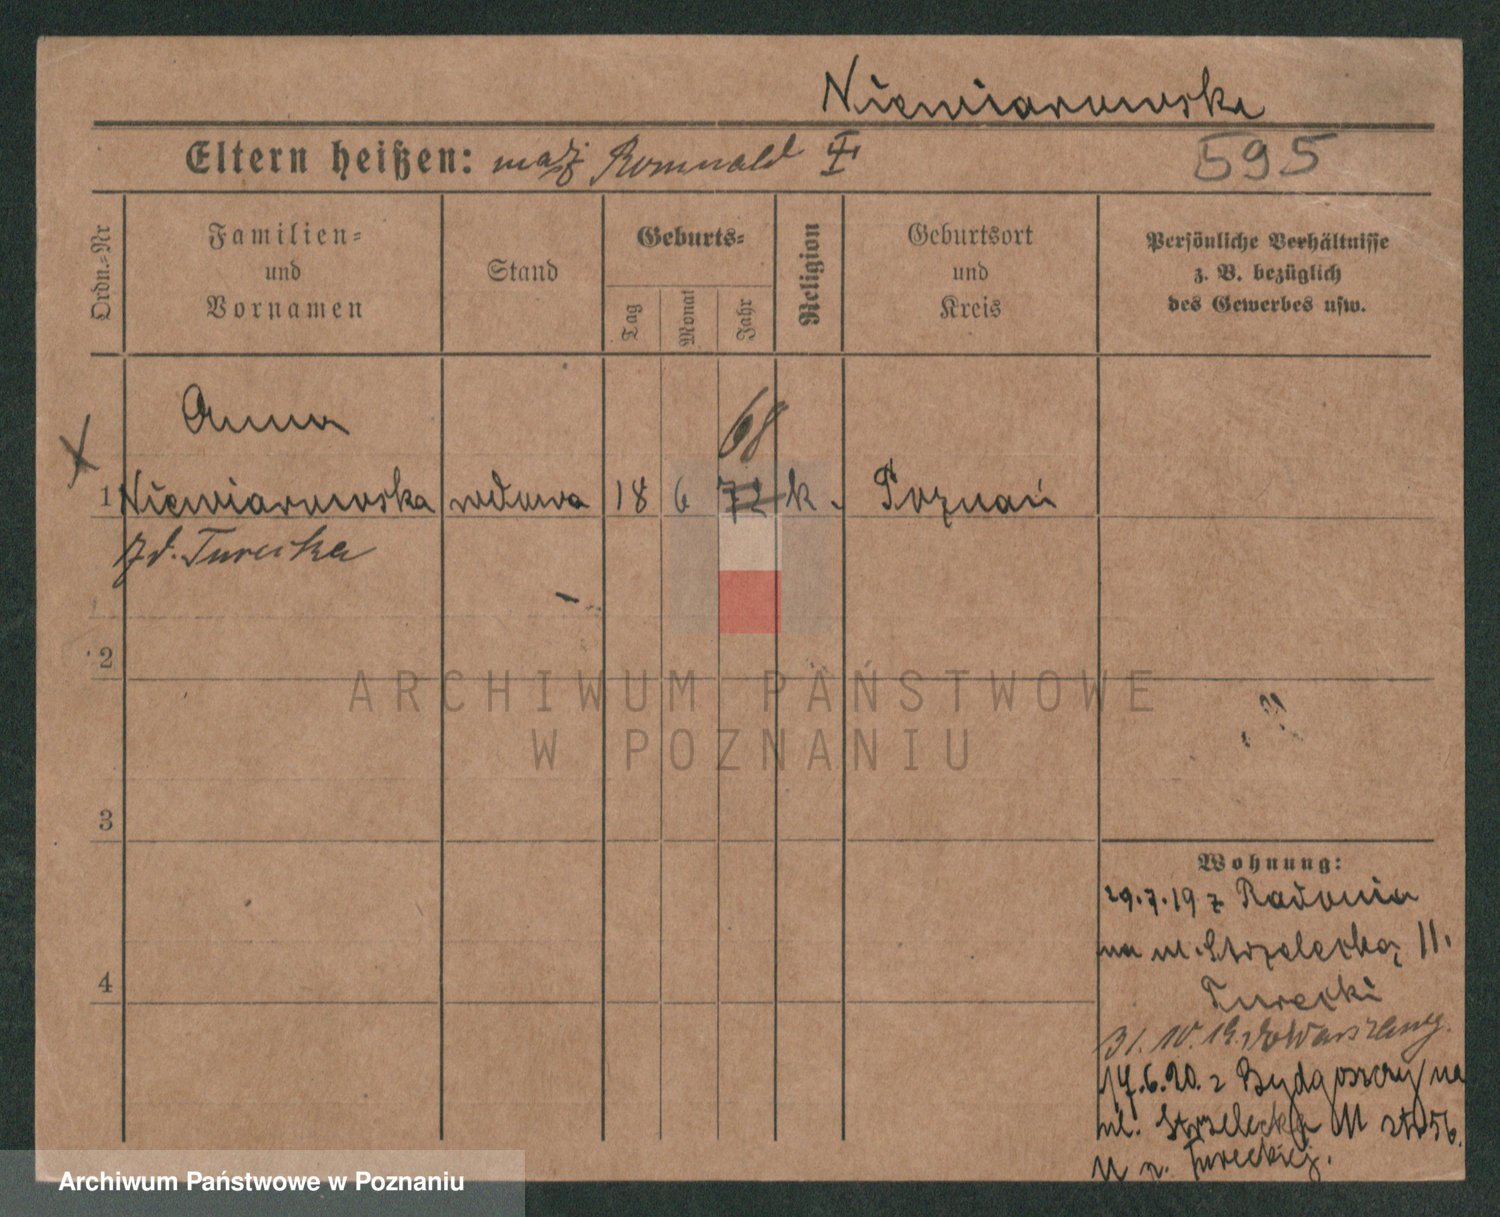 Niewiarowska
Eltern heißen: mąż Romuald
595
Ordn.-Nr
Familien-
und
Vornamen
Stand
Geburts-
Tag
Monat
Jahr
Religion
Geburtsort
und
Kreis
Persönliche Verhältnisse
z. B. bezüglich
des Gewerbes usw.
Anna
68
1 Niewiarowska wdowa 18 6 72 k. Poznań
zd. Turecka
2
3
4
Wohnung:
29.7.19 z Radonia
na ul. Strzelecką 11.
Turecki
31.10.19. do Warszawy.
17.6.20. z Bydgoszczy na
ul. Strzelecką
u p. Tureckiej.
ARCHIWUM PAŃSTWOWE
W POZNANIU
Archiwum Państwowe w Poznaniu